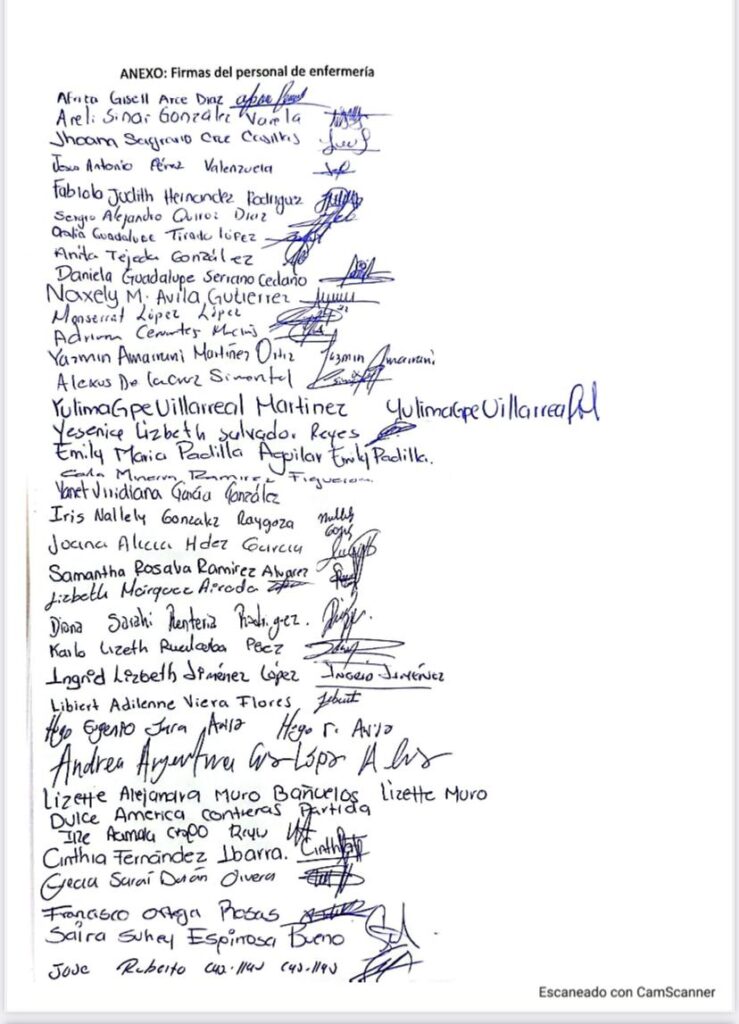 ANEXO: Firmas del personal de enfermería
Africa Gisell Arce Diaz
Areli Sinai González Varela
Jhoam
Jesus Antonio Pérez Valenzuela
Fabiola Judith Hernandez Rodriguez
Sergio Alejandro Quiroz Diaz
Guadalupe Tirado López
Anita Tejeda González
Daniela Guadalupe Serrano Cedano
Naxely M. Avila Gutierrez
Monserrat López López
Adriana Cervantes
Yazmin Amairani Martinez Ortiz Yazmin Amairani
Alexus De la cruz Simental
Yulima Gpe Villarreal Martinez Yulima Gpe Villarreal
Yesenia Lizbeth Salvador Reyes
Emily Maria Padilla Aguilar Emily Padilla.
Carla Minerva Ramirez Figueroa
Yanet Viridiana García González
Iris Nallely Gonzalez Raygoza
Joana Alicia Hdez Garcia
Samantha Rosalva Ramirez Alvarez
Lizbeth Márquez
Diana Sarahi Renteria Rodriguez.
Karla Lizeth Ruelas Pérez
Ingrid Lizbeth Jiménez López Ingrid Jiménez
Libiert Adilenne Viera Flores
Hugo Eugenio Jara
Andrea Argentina López
Lizette Alejandra Muro Bañuelos Lizette Muro
Dulce America Contreras Partida
Cinthia Fernández Ibarra. Cinthia
Grecia Saraí Durán Olvera
Francisco Ortega Rosas
Saira Suhey Espinosa Bueno
Jose Ruberto
Escaneado con CamScanner